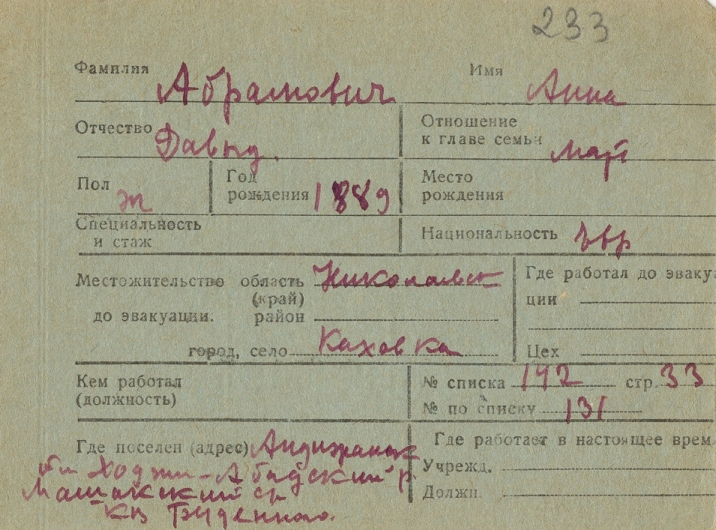 233
Фамилия Абрамович Имя Анна
Отчество Давыд. Отношение
к главе семьи мать
Пол ж Год
рождения 1889 Место
рождения
Специальность
и стаж Национальность евр
Местожительство область Николаевск Где работал до эваку
(край) ции
до эвакуации. район
город, село Каховка Цех
Кем работал № списка 142 стр. 33
(должность) № по списку 131
Где поселен (адрес) Андижанск Где работает в настоящее врем
обл Ходжи-Абадский р Учрежд.
Должн.
кз Буденного.